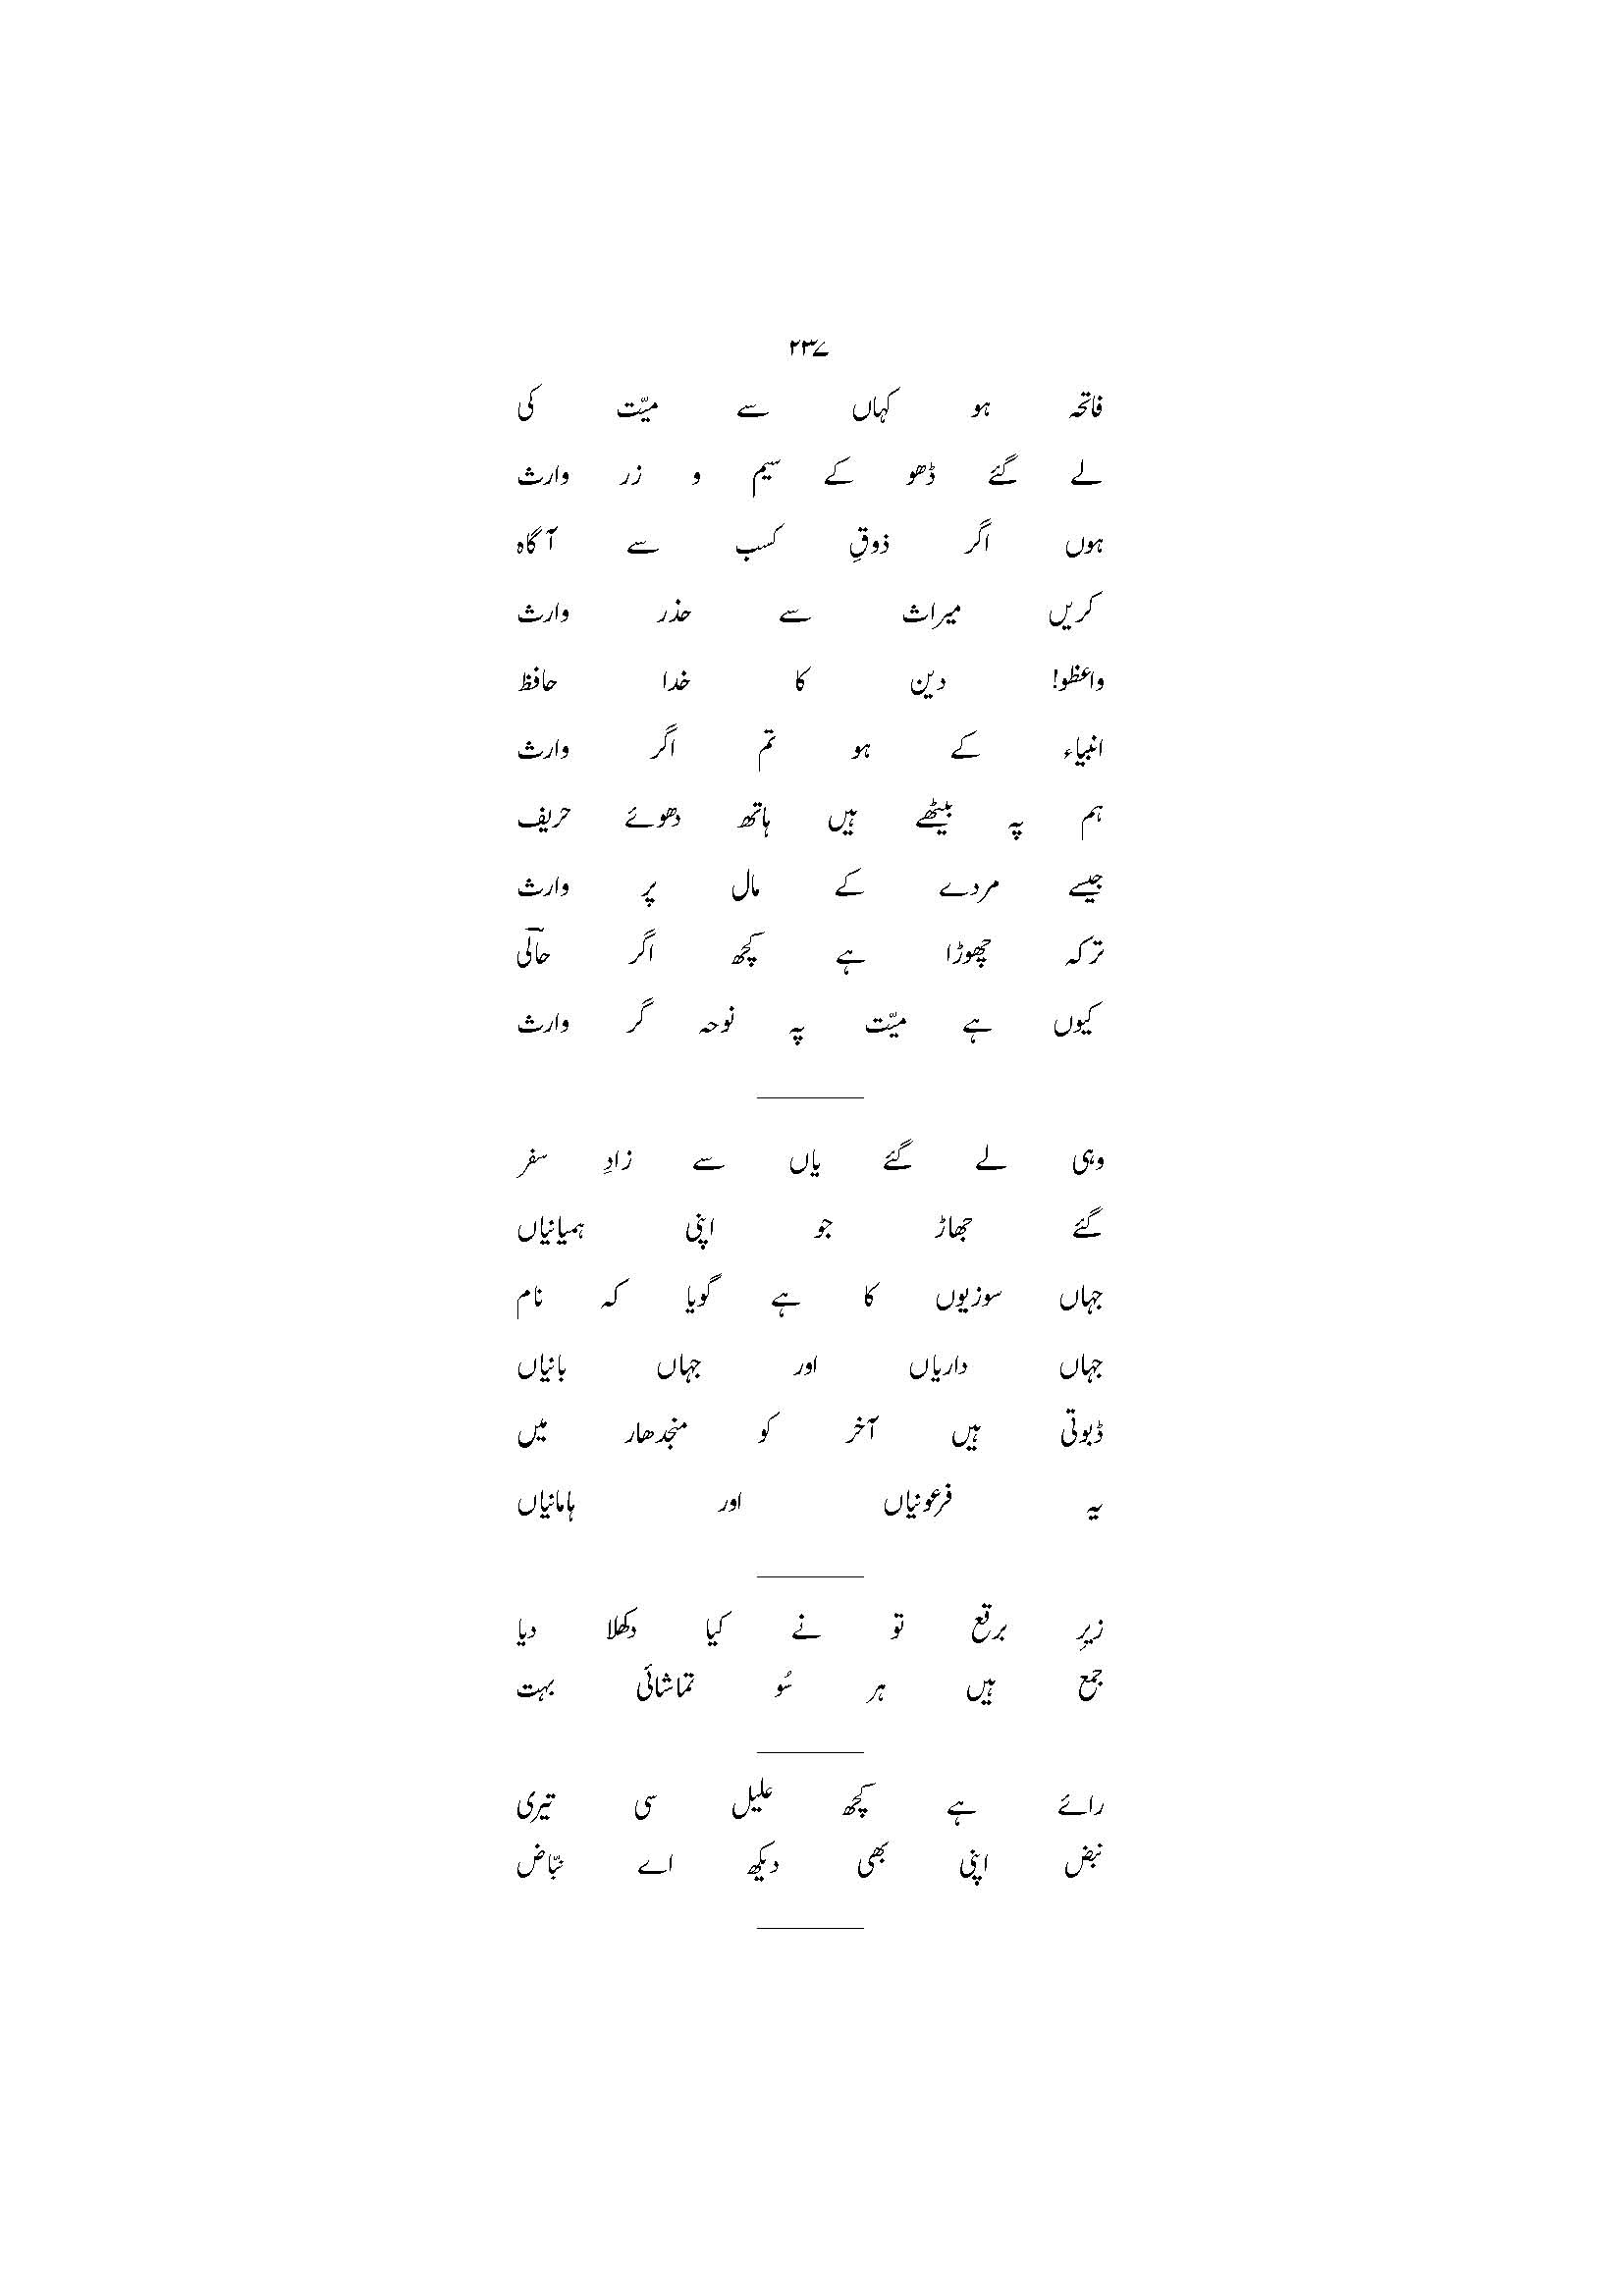 ۲۳۷
فاتحہ ہو کہاں سے میّت کی
لے گئے ڈھو کے سیم و زر وارث
ہوں اگر ذوقِ کسب سے آگاہ
کریں میراث سے حذر وارث
واعظو! دین کا خدا حافظ
انبیاء کے ہو تم اگر وارث
ہم پہ بیٹھے ہیں ہاتھ دھوئے حریف
جیسے مردے کے مال پر وارث
ترکہ چھوڑا ہے کچھ اگر حالؔی
کیوں ہے میّت پہ نوحہ گر وارث
وہی لے گئے یاں سے زادِ سفر
گئے جھاڑ جو اپنی ہمیانیاں
جہاں سوزیوں کا ہے گویا کہ نام
جہاں داریاں اور جہاں بانیاں
ڈبوتی ہیں آخر کو منجدھار میں
یہ فرعونیاں اور ہامانیاں
زیرِ برقع تو نے کیا دکھلا دیا
جمع ہیں ہر سُو تماشائی بہت
رائے ہے کچھ علیل سی تیری
نبض اپنی بھی دیکھ اے نبّاض